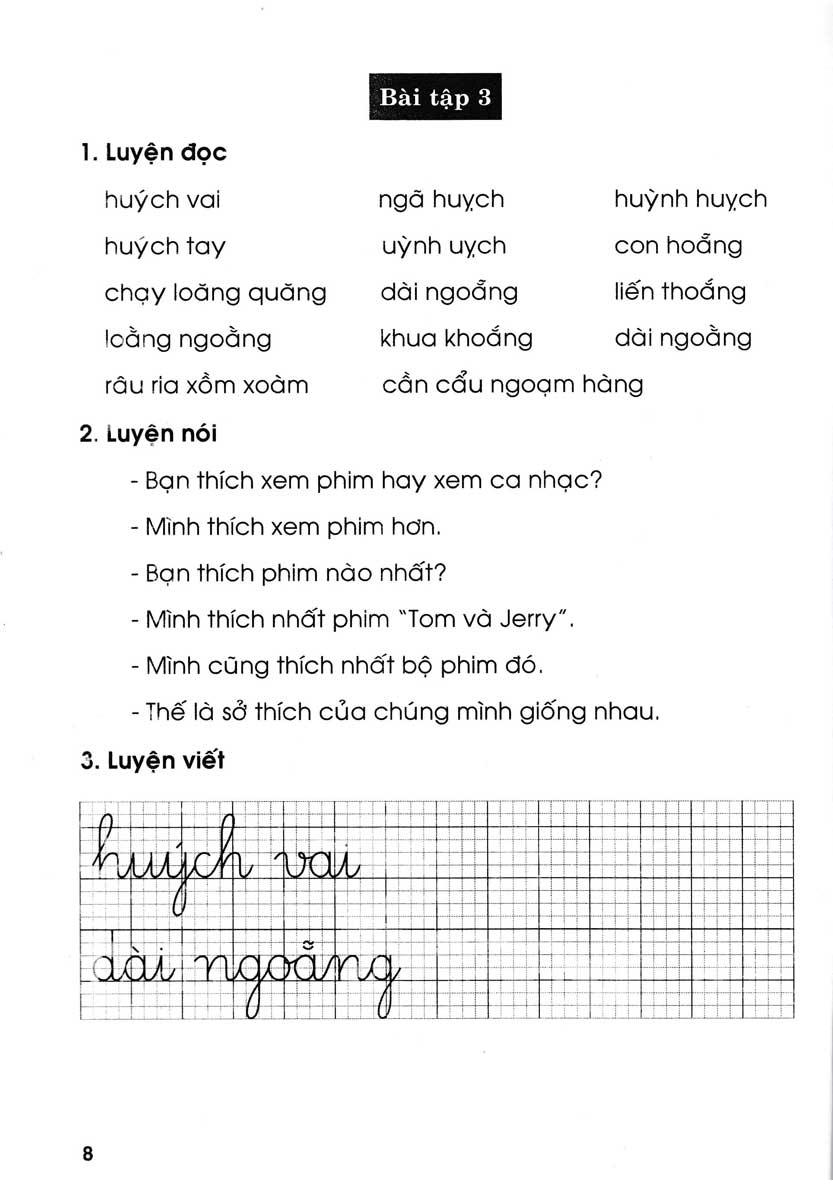 Bài tập 3
1. Luyện đọc
huých vai ngã huỵch huỳnh huỵch
huých tay uỳnh uỵch con hoẵng
chạy loăng quăng dài ngoẵng liến thoắng
loằng ngoằng khua khoắng dài ngoằng
râu ria xồm xoàm cần cẩu ngoạm hàng
2. Luyện nói
- Bạn thích xem phim hay xem ca nhạc?
- Mình thích xem phim hơn.
- Bạn thích phim nào nhất?
- Mình thích nhất phim “Tom và Jerry”.
- Mình cũng thích nhất bộ phim đó.
- Thế là sở thích của chúng mình giống nhau.
3. Luyện viết
huých vai
dài ngoẵng
8